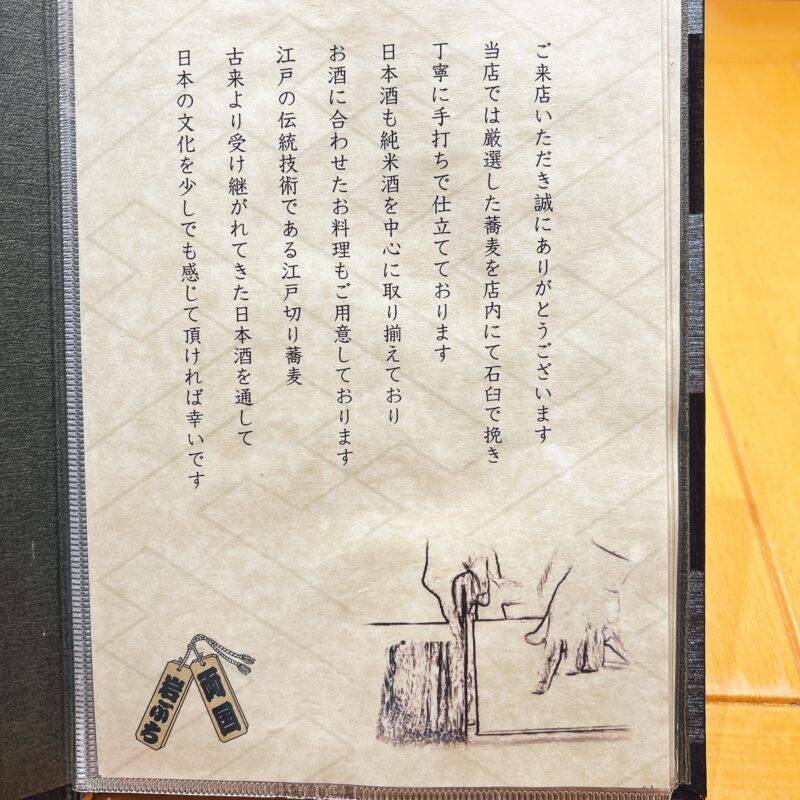 ご来店いただき誠にありがとうございます
当店では厳選した蕎麦を店内にて石臼で挽き
丁寧に手打ちで仕立てております
日本酒も純米酒を中心に取り揃えており
お酒に合わせたお料理もご用意しております
江戸の伝統技術である江戸切り蕎麦
古来より受け継がれてきた日本酒を通して
日本の文化を少しでも感じて頂ければ幸いです
両国
岩ぶち